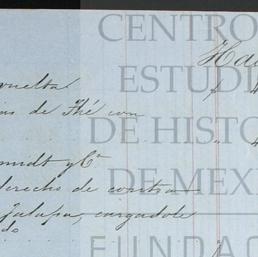 CENTRO
Ha
ESTUDI
vuelta
as de Thé con
DE HISTO
midt y Ca
DE MEX
derecho de contra
Jalapa, cargadole
do
FUNDAC